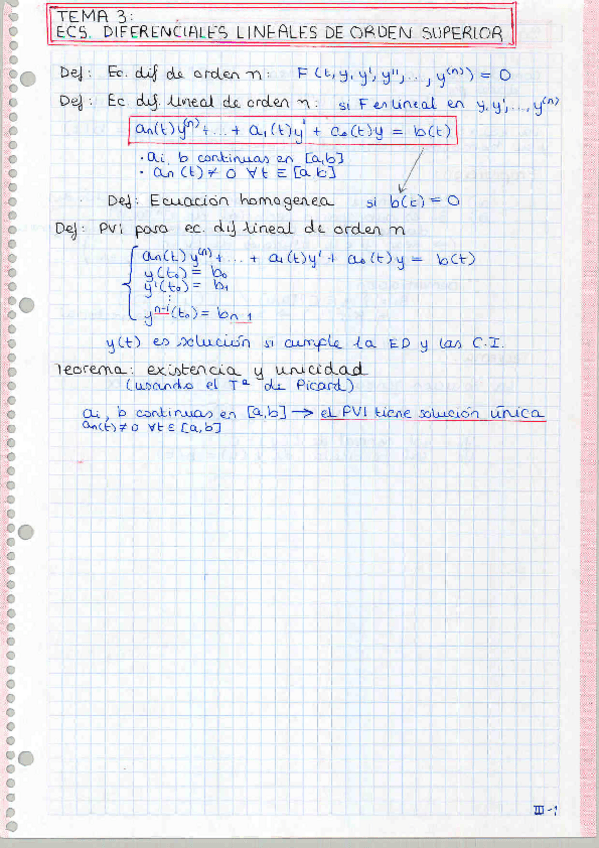 TEMA 3:
ECS. DIFERENCIALES LINEALES DE ORDEN SUPERIOR
Def: Ec. dif de orden n: F(t, y, y', y'', ..., y⁽ⁿ⁾) = 0
Def: Ec. dif. lineal de orden n: si F es lineal en y, y', ..., y⁽ⁿ⁾
an(t)y⁽ⁿ⁾ + ... + a₁(t)y' + a₀(t)y = b(t)
· ai, b continuas en [a,b]
· an(t) ≠ 0 ∀t ∈ [a,b]
Def: Ecuación homogenea si b(t) = 0
Def: PVI para ec. dif lineal de orden n
an(t)y⁽ⁿ⁾ + ... + a₁(t)y' + a₀(t)y = b(t)
y(t₀) = b₀
y'(t₀) = b₁
⋮
yⁿ⁻¹(t₀) = bₙ₋₁
y(t) es solución si cumple la ED y las C.I.
Teorema: existencia y unicidad
(usando el Tª de Picard)
ai, b continuas en [a,b] → el PVI tiene solución única
an(t) ≠ 0 ∀t ∈ [a,b]
III-1